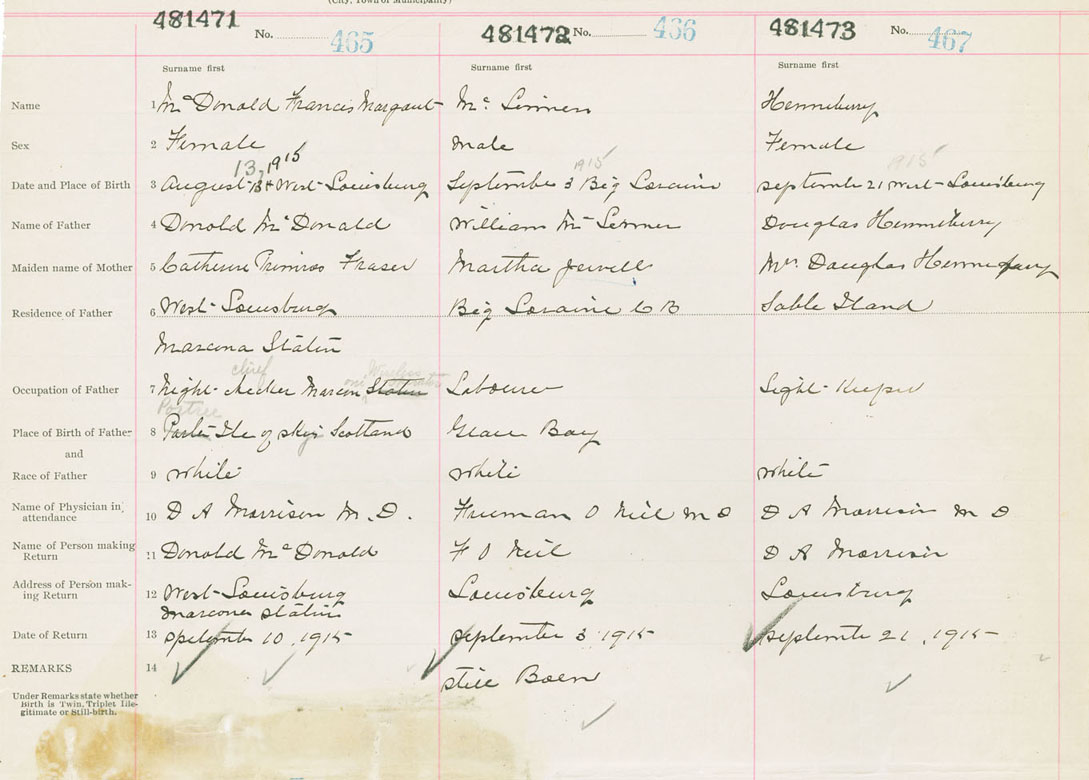 (City, Town or Municipality)
481471 No. 465 481472 No. 466 481473 No. 467
Surname first Surname first Surname first
Name 1 Mc Donald Francis Margaret Mc Henneberry
Sex 2 Female Male Female
13, 1915 1915 1915
Date and Place of Birth 3 August West-Louisburg September 3 Big Loraine September 21 West-Louisburg
Name of Father 4 Donald Mc Donald William Mc Douglas Henneberry
Maiden name of Mother 5 Catherine Primros Fraser Martha Jewell Mrs. Douglas Henneberry
Residence of Father 6 West-Louisburg Big Loraine C B Sable Island
Marcona Statin
chief Wireless
Occupation of Father 7 Night- Marcon Statin Labourer Light-Keeper
Portree
Place of Birth of Father 8 Ile of Skye Scotland Glace Bay
and
Race of Father 9 White White White
Name of Physician in attendance 10 D A Morrison M.D. Freeman O Neil M D D A Morrison M D
Name of Person making Return 11 Donald McDonald F O Neil D A Morrison
Address of Person making Return 12 West-Louisburg Louisburg Louisburg
Marcona Statin
Date of Return 13 September 10, 1915 September 3 1915 September 21, 1915
REMARKS 14 still Born
Under Remarks state whether
Birth is Twin, Triplet Ille-
gitimate or Still-birth.